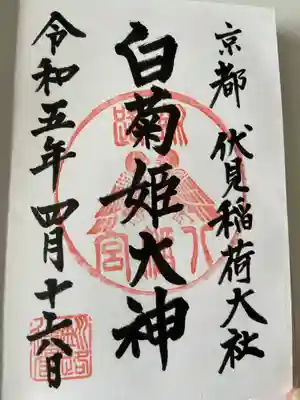 京都 伏見稲荷大社
白菊姫大神
令和五年 四月 十六日